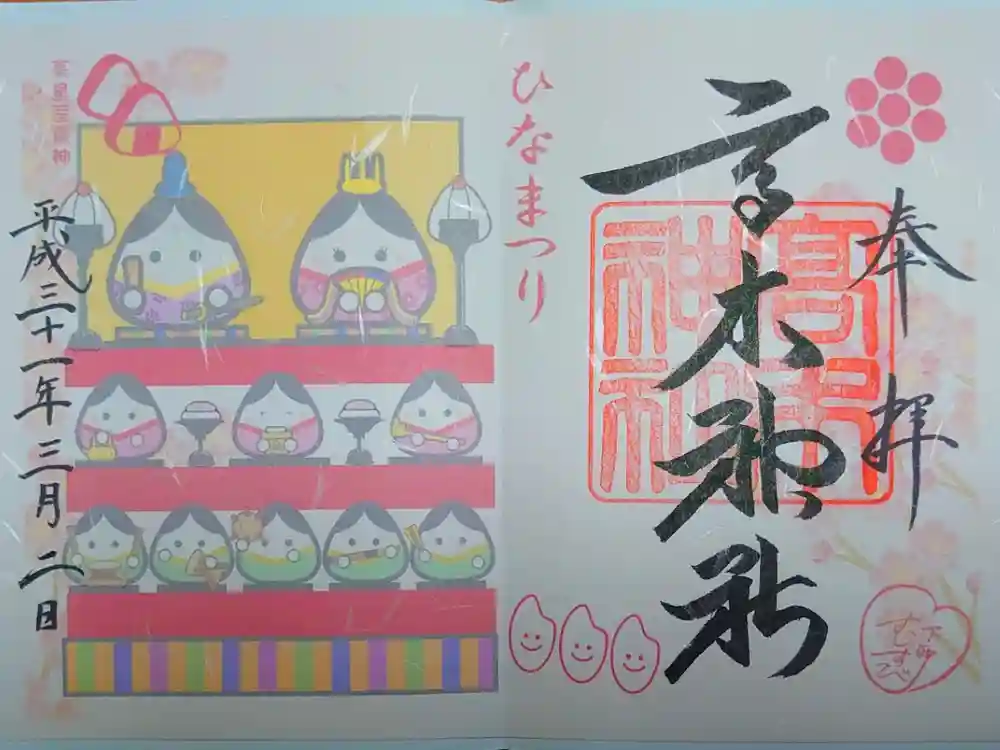 奉拝
高木神社
高木神社
ひなまつり
むすび
平成三十一年三月二日